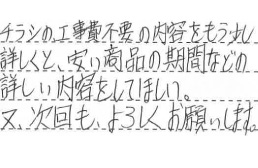 チラシの工事費不要の内容をもう少し
詳しくと、安い商品の期間などの
詳しい内容をしてほしい。
又、次回も、よろしくお願いします。